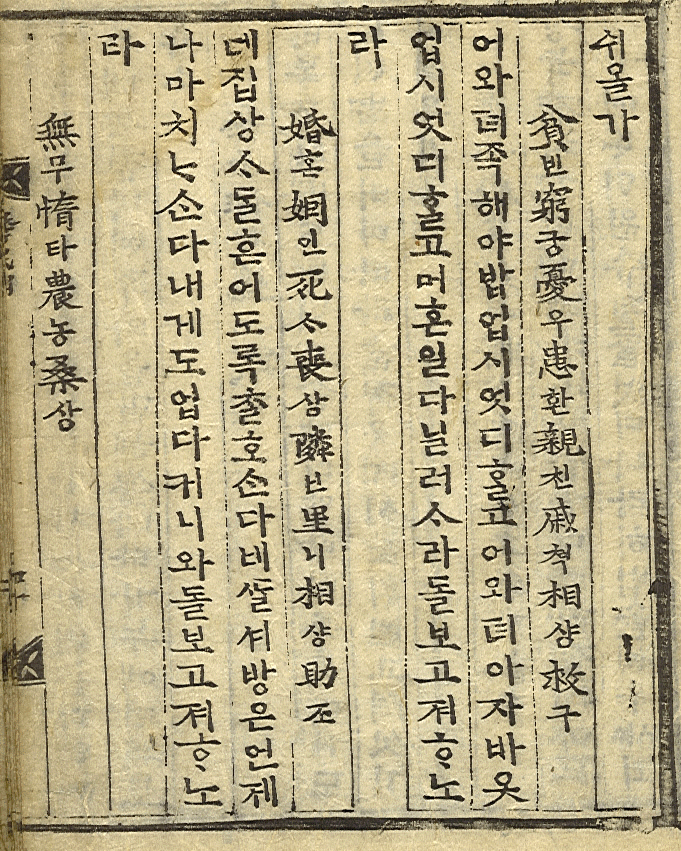 쉬올가
貧빈窮궁憂우患환親친戚쳑相샹救구
어와뎌족해야밥업시엇디ᄒᆞᆯ고어와뎌아자바옷
업시엇디ᄒᆞᆯ고머혼일다닐러ᄉᆞ라돌보고져ᄒᆞ노
라
婚혼姻인死ᄉᆞ喪상隣닌里니相샹助조
네집상ᄉᆞ돌흔어도록출호ᄉᆞᆫ다네ᄯᆞᆯ셔방은언제
나마치ᄂᆞᄉᆞᆫ다내게도업다커니와돌보고져ᄒᆞ노
라
無무惰타農농桑상